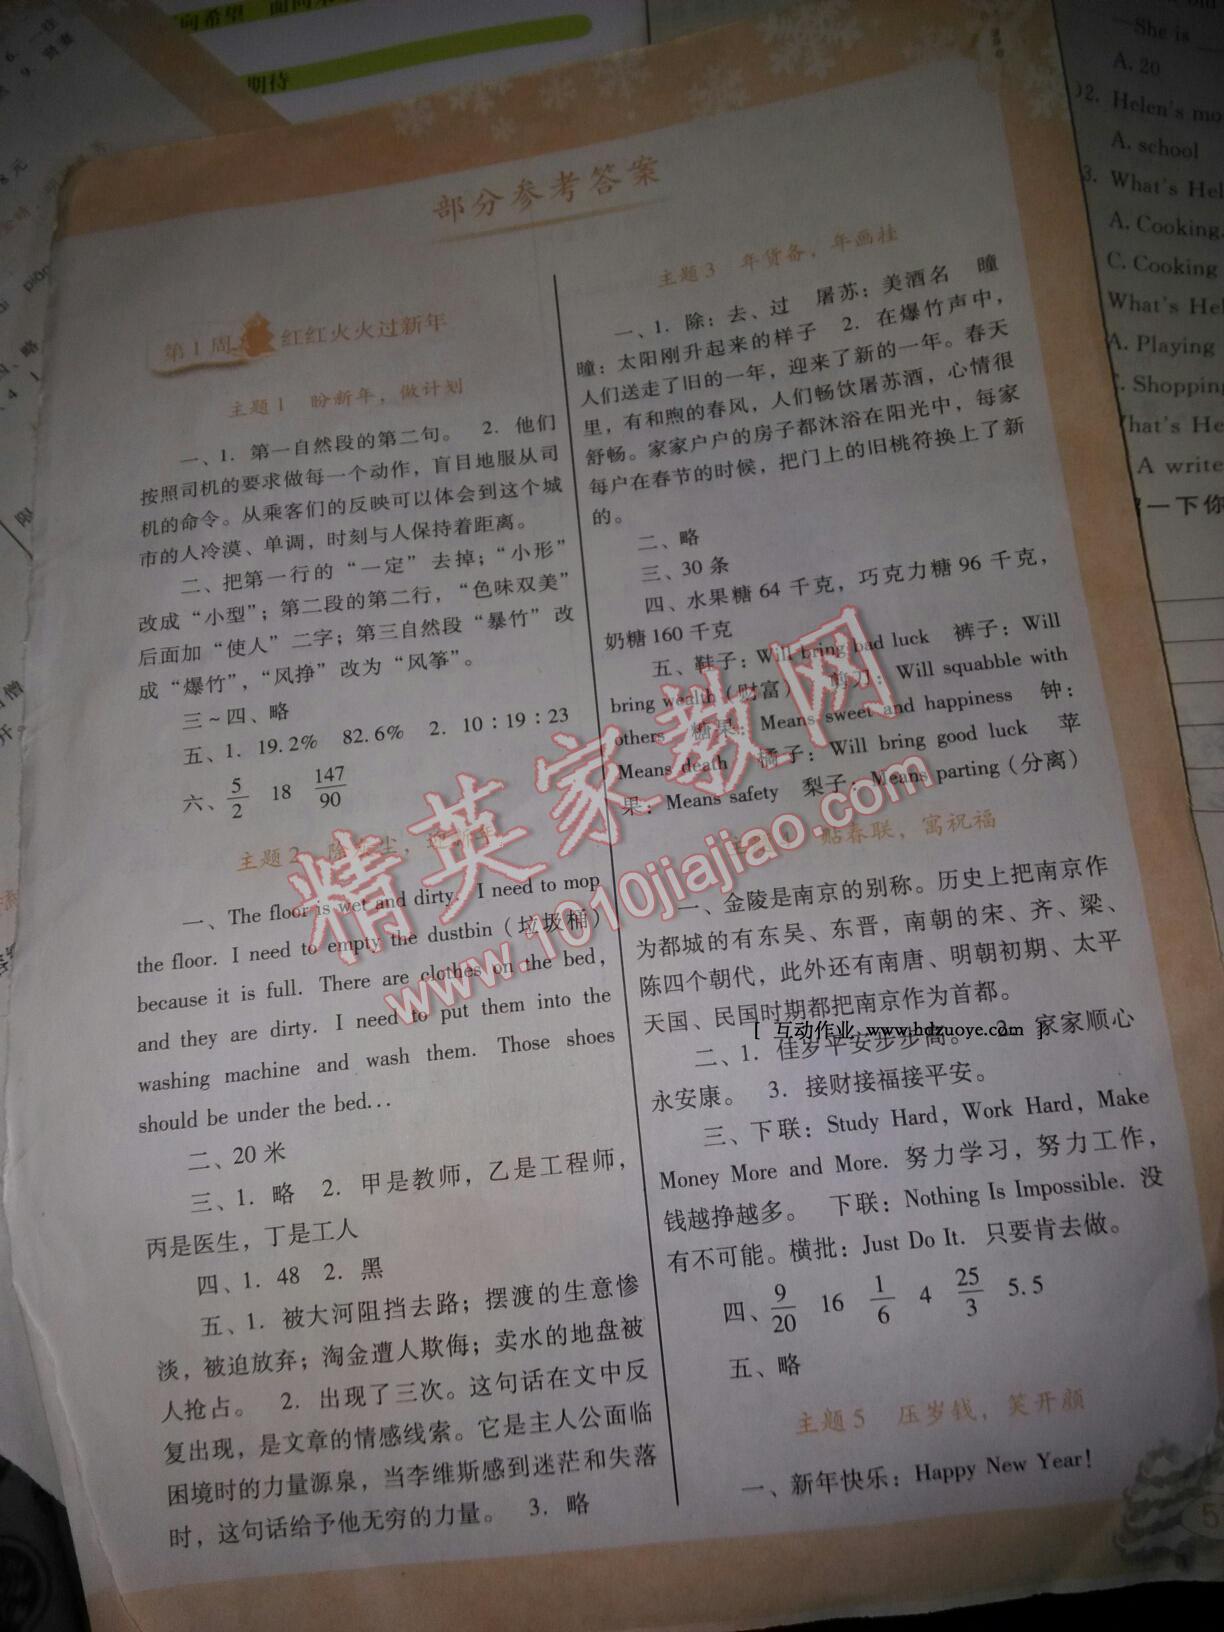 部分参考答案
第1周 红红火火过新年
主题1 盼新年，做计划
一、1. 第一自然段的第二句。 2. 他们
按照司机的要求做每一个动作，盲目地服从司
机的命令。从乘客们的反映可以体会到这个城
市的人冷漠、单调，时刻与人保持着距离。
二、把第一行的“一定”去掉；“小形”
改成“小型”；第二段的第二行，“色味双美”
后面加“使人”二字；第三自然段“暴竹”改
成“爆竹”，“风挣”改为“风筝”。
三～四、略
五、1. 19.2% 82.6% 2. 10∶19∶23
六、5/2 18 147/90
主题2 除尘，迎新年
一、The floor is wet and dirty. I need to mop
the floor. I need to empty the dustbin (垃圾桶)
because it is full. There are clothes on the bed,
and they are dirty. I need to put them into the
washing machine and wash them. Those shoes
should be under the bed...
二、20 米
三、1. 略 2. 甲是教师，乙是工程师，
丙是医生，丁是工人
四、1. 48 2. 黑
五、1. 被大河阻挡去路；摆渡的生意惨
淡，被迫放弃；淘金遭人欺侮；卖水的地盘被
人抢占。 2. 出现了三次。这句话在文中反
复出现，是文章的情感线索。它是主人公面临
困境时的力量源泉，当李维斯感到迷茫和失落
时，这句话给予他无穷的力量。 3. 略
主题3 年货备，年画挂
一、1. 除：去、过 屠苏：美酒名 曈
曈：太阳刚升起来的样子 2. 在爆竹声中，
人们送走了旧的一年，迎来了新的一年。春天
里，有和煦的春风，人们畅饮屠苏酒，心情很
舒畅。家家户户的房子都沐浴在阳光中，每家
每户在春节的时候，把门上的旧桃符换上了新
的。
二、略
三、30 条
四、水果糖 64 千克，巧克力糖 96 千克，
奶糖 160 千克
五、鞋子：Will bring bad luck 裤子：Will
bring wealth (财富) 剪刀：Will squabble with
others 糖果：Means sweet and happiness 钟：
Means death 橘子：Will bring good luck 苹
果：Means safety 梨子：Means parting (分离)
贴春联，寓祝福
一、金陵是南京的别称。历史上把南京作
为都城的有东吴、东晋，南朝的宋、齐、梁、
陈四个朝代，此外还有南唐、明朝初期、太平
天国、民国时期都把南京作为首都。
二、1. 佳岁平安步步高。 2. 家家顺心
永安康。 3. 接财接福接平安。
三、下联：Study Hard, Work Hard, Make
Money More and More. 努力学习，努力工作，
钱越挣越多。 下联：Nothing Is Impossible. 没
有不可能。横批：Just Do It. 只要肯去做。
四、9/20 16 1/6 4 25/3 5.5
五、略
主题5 压岁钱，笑开颜
一、新年快乐：Happy New Year!
精英家教网
www.1010jiajiao.com
[ 互动作业 www.hdzuoye.com ]
期待
—She is
A. 20
Helen's mo
A. school
What's Hel
A. Cooking
C. Cooking
What's Hel
A. Playing
Shopping
hat's He
A write
一下你